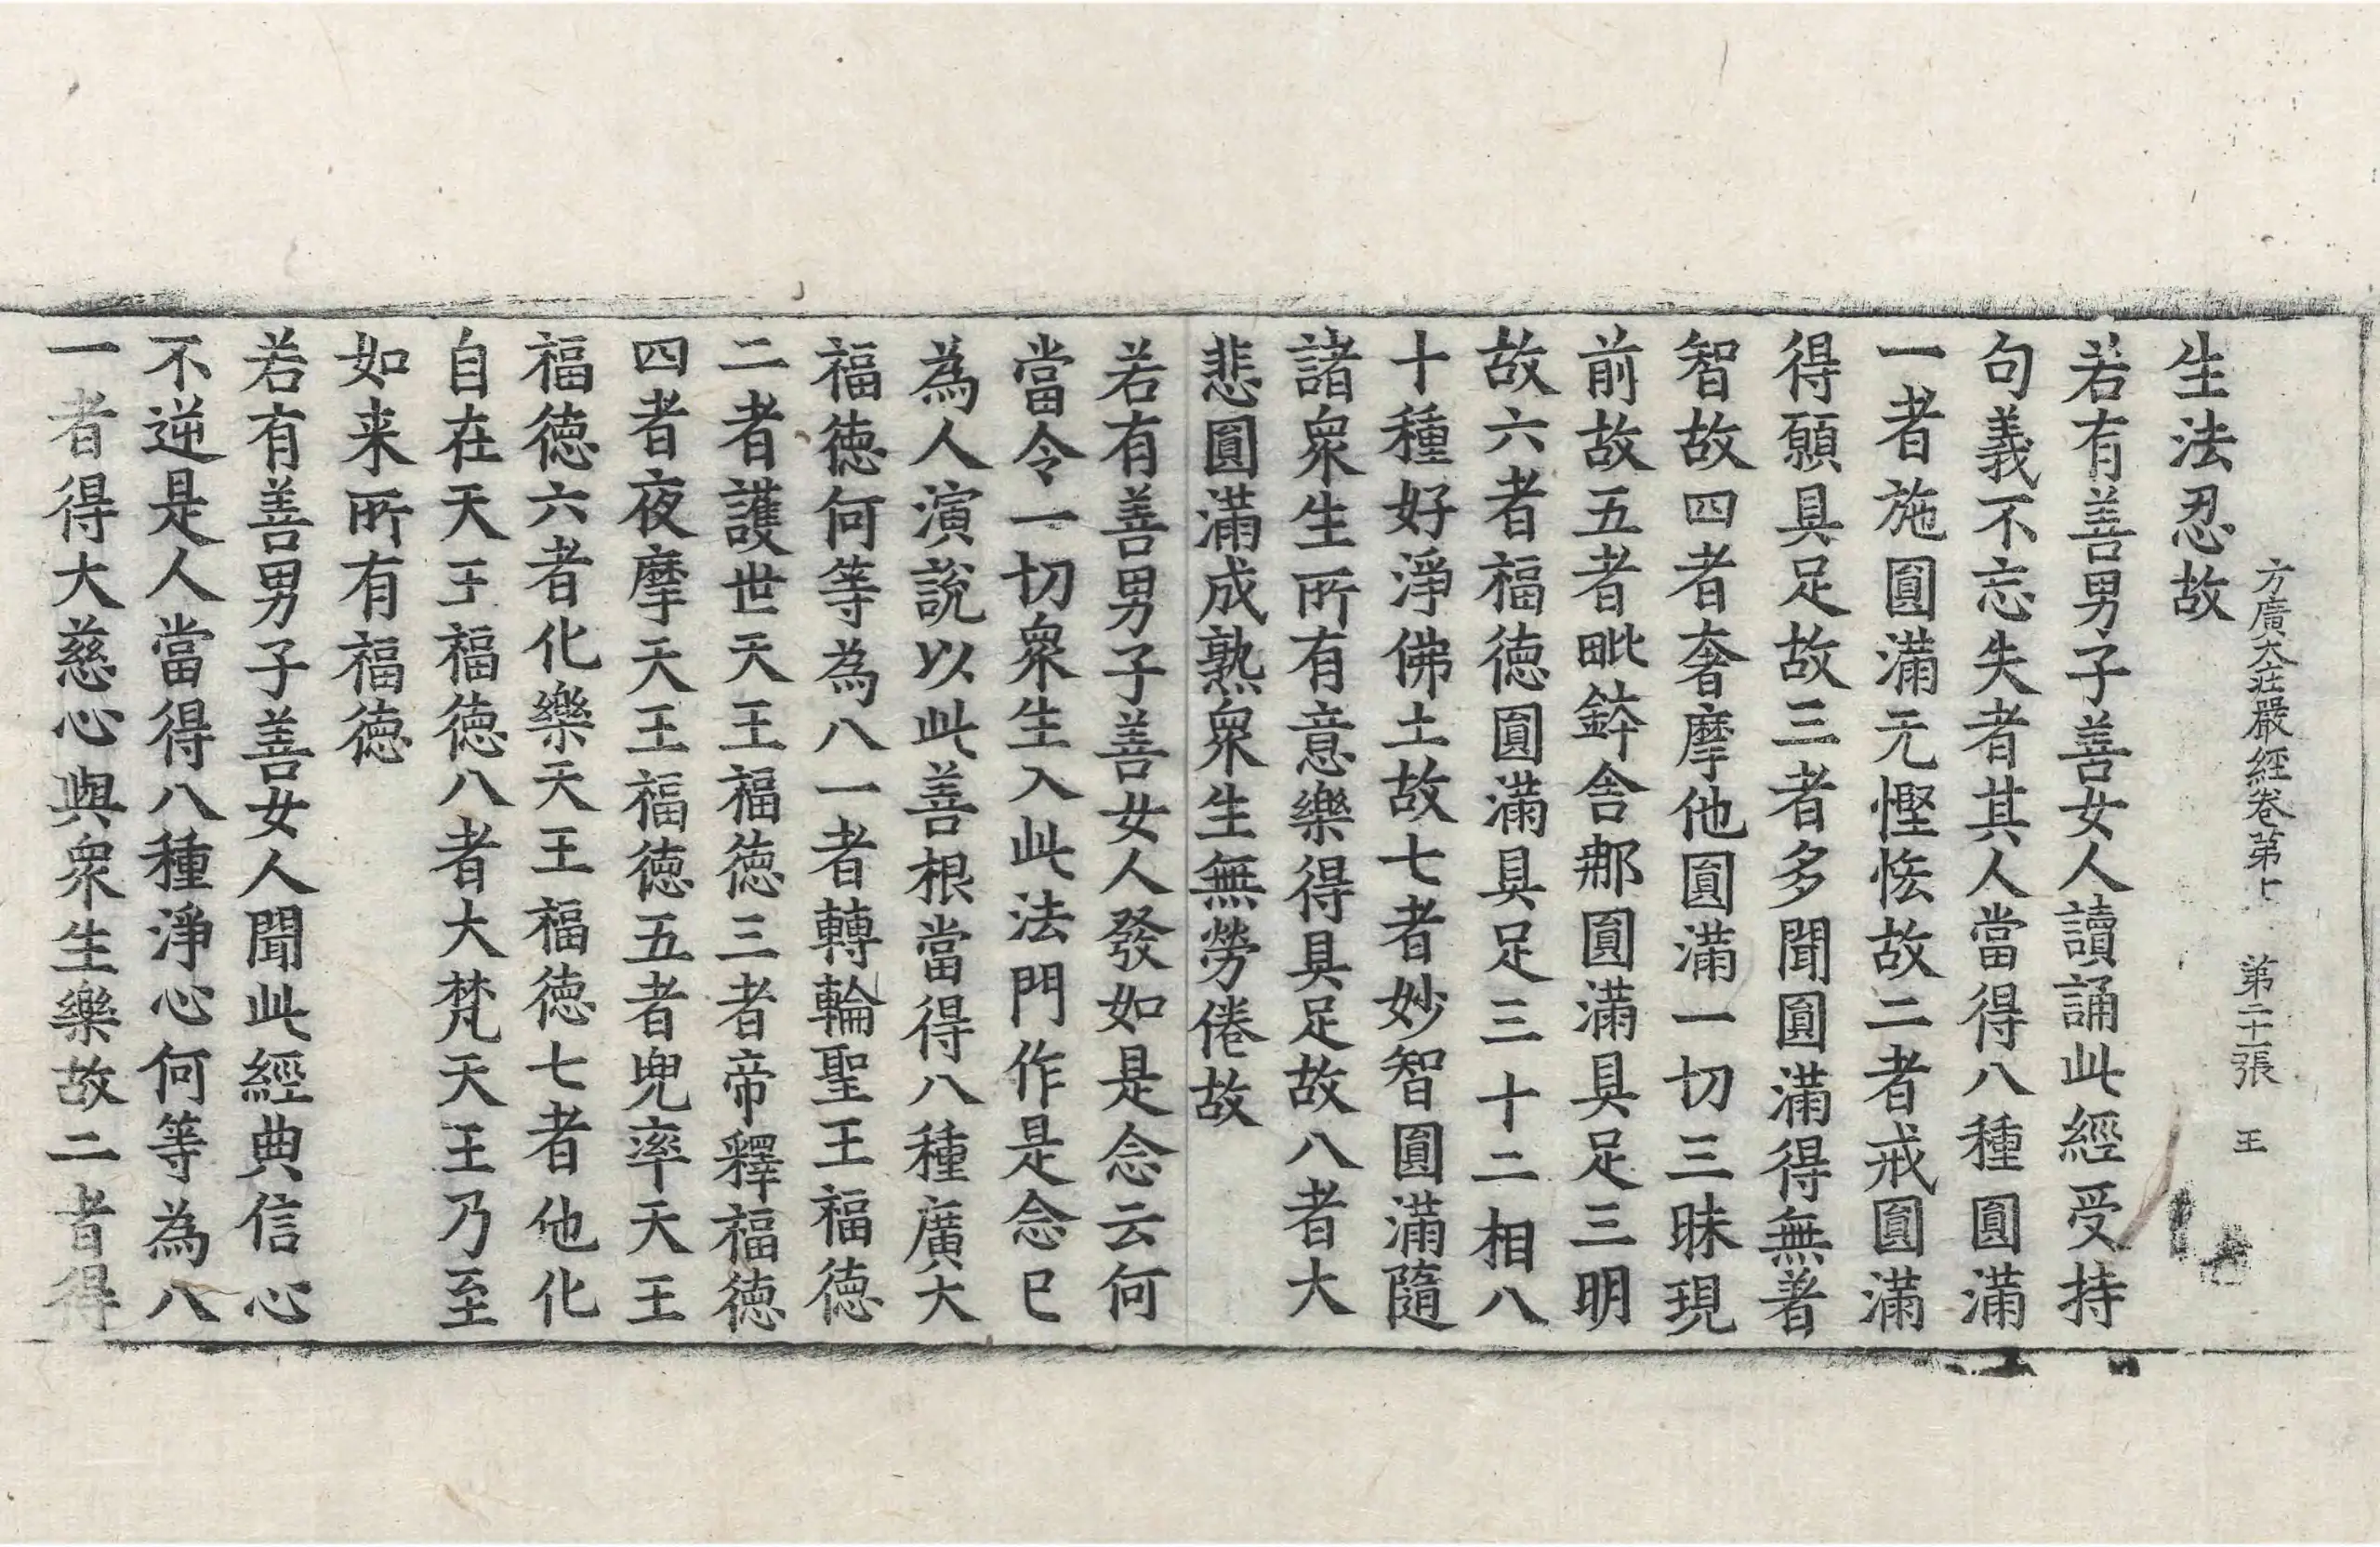 方廣大莊嚴經卷第十二 第二十張 王
生法忍故
若有善男子善女人讀誦此經受持
句義不忘失者其人當得八種圓滿
一者施圓滿无慳悋故二者戒圓滿
得願具足故三者多聞圓滿得無著
智故四者奢摩他圓滿一切三昧現
前故五者毗鉢舍那圓滿具足三明
故六者福德圓滿具足三十二相八
十種好淨佛土故七者妙智圓滿隨
諸衆生所有意樂得具足故八者大
悲圓滿成熟衆生無勞倦故
若有善男子善女人發如是念云何
當令一切衆生入此法門作是念已
為人演說以此善根當得八種廣大
福德何等為八一者轉輪聖王福德
二者護世天王福德三者帝釋福德
四者夜摩天王福德五者兜率天王
福德六者化樂天王福德七者他化
自在天王福德八者大梵天王乃至
如来所有福德
若有善男子善女人聞此經典信心
不逆是人當得八種淨心何等為八
一者得大慈心與衆生樂故二者得